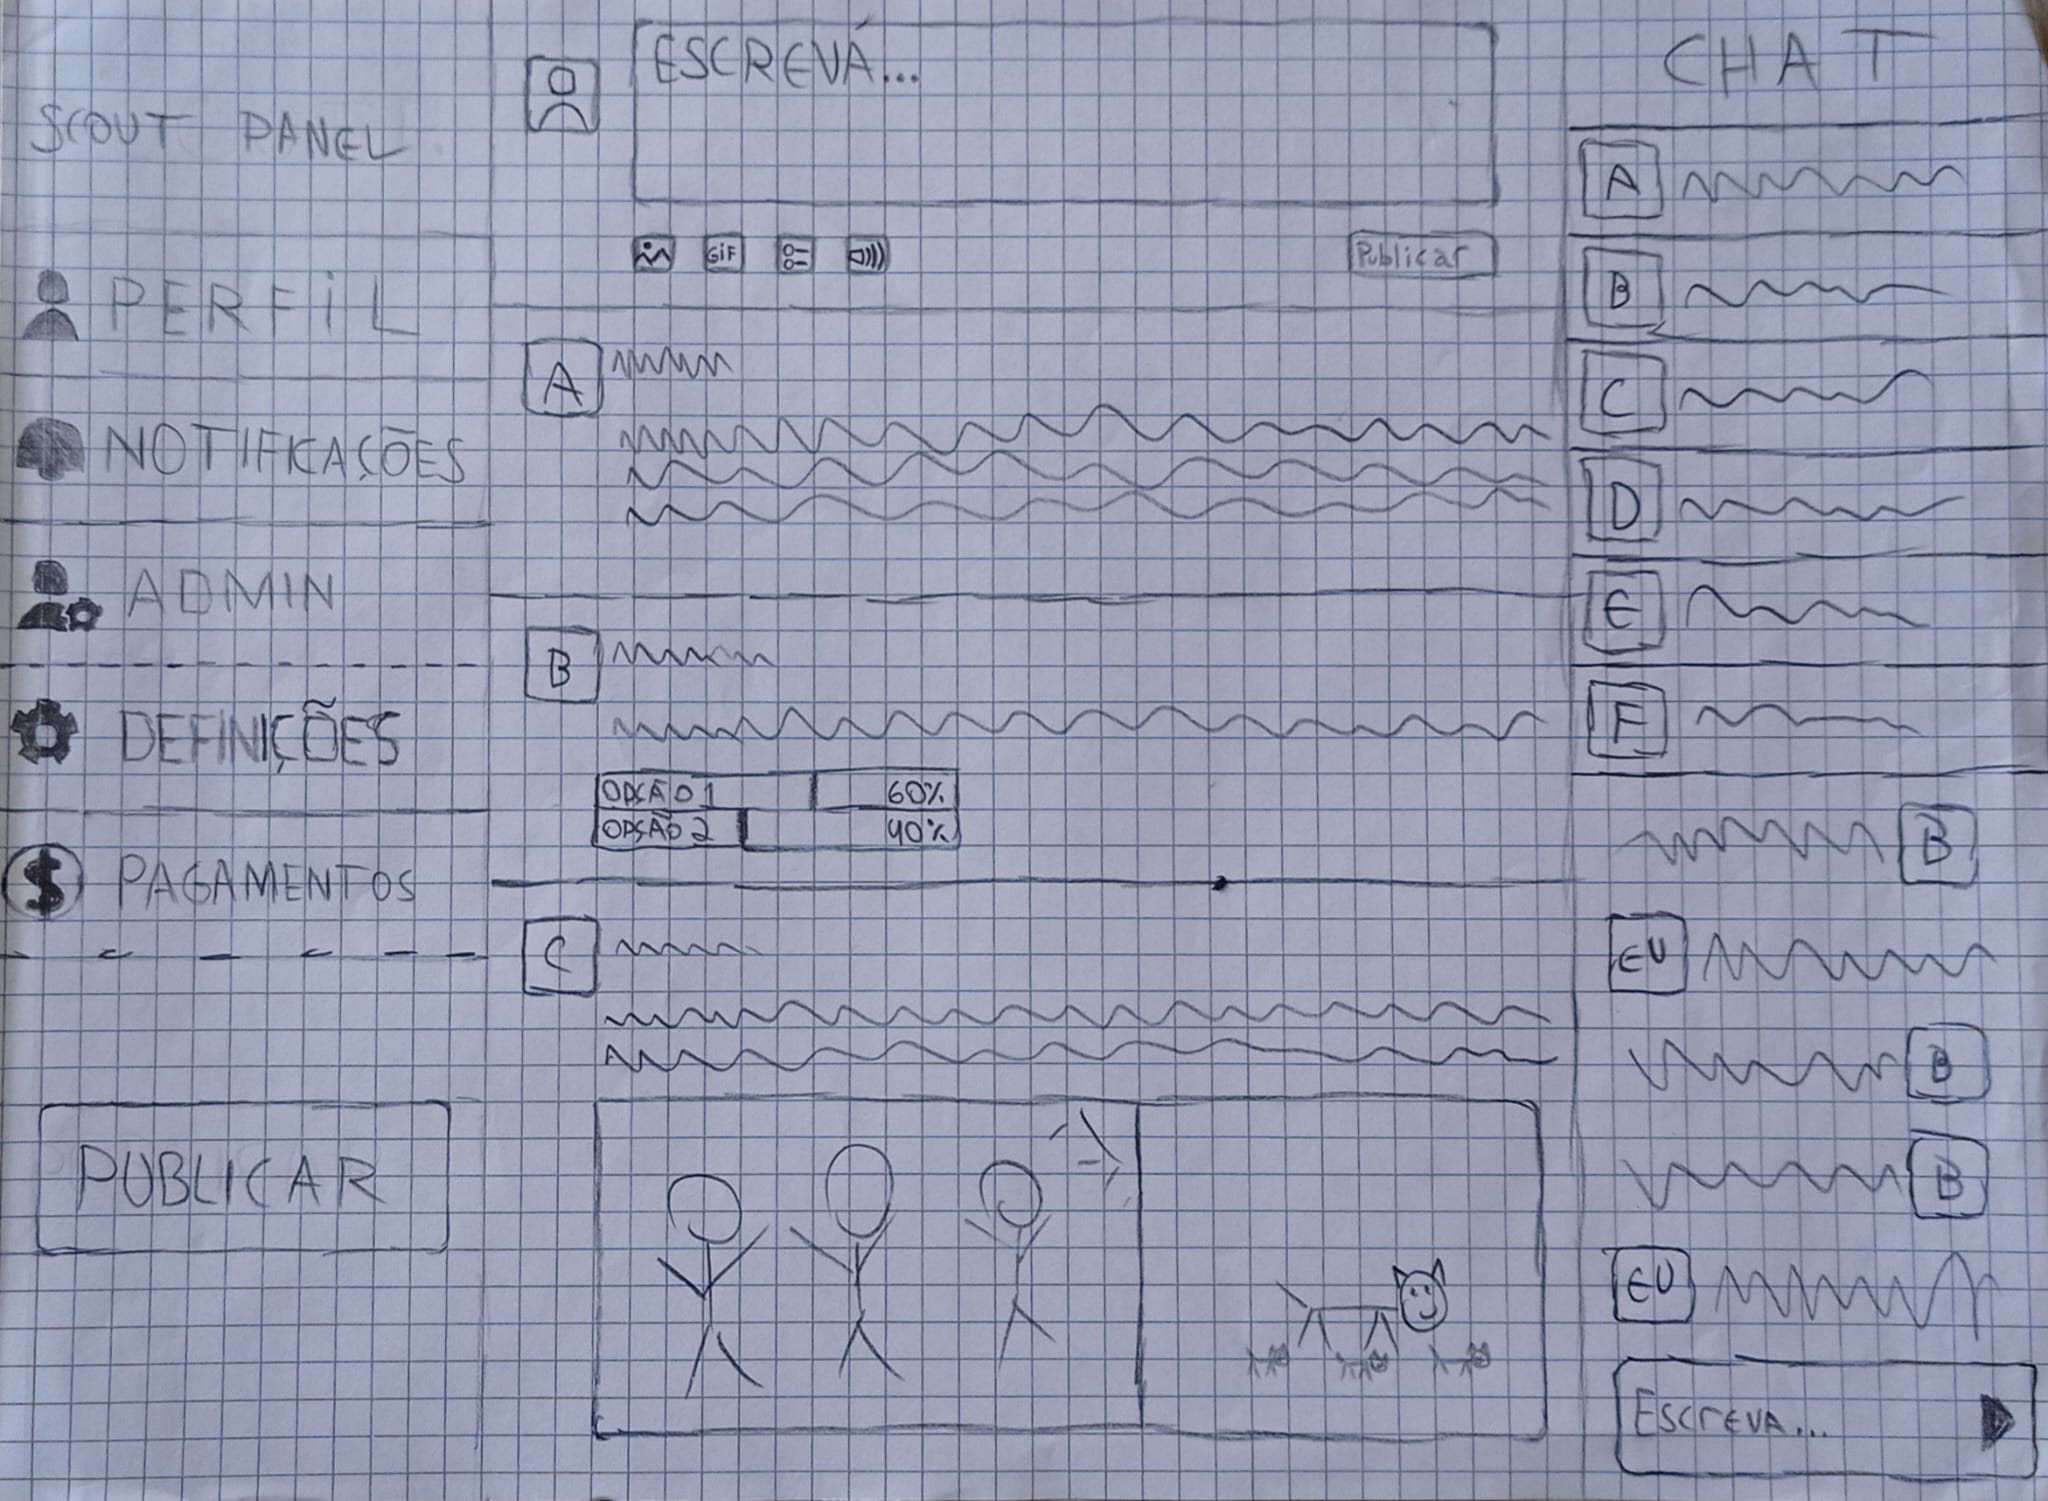 SCOUT PANEL
PERFIL
NOTIFICAÇÕES
ADMIN
DEFINIÇÕES
$ PAGAMENTOS
PUBLICAR
ESCREVÁ...
GIF
Publicar
A
B
OPÇÃO 1 60%
OPÇÃO 2 40%
C
CHAT
A
B
C
D
E
F
B
EU
B
B
EU
ESCREVA...